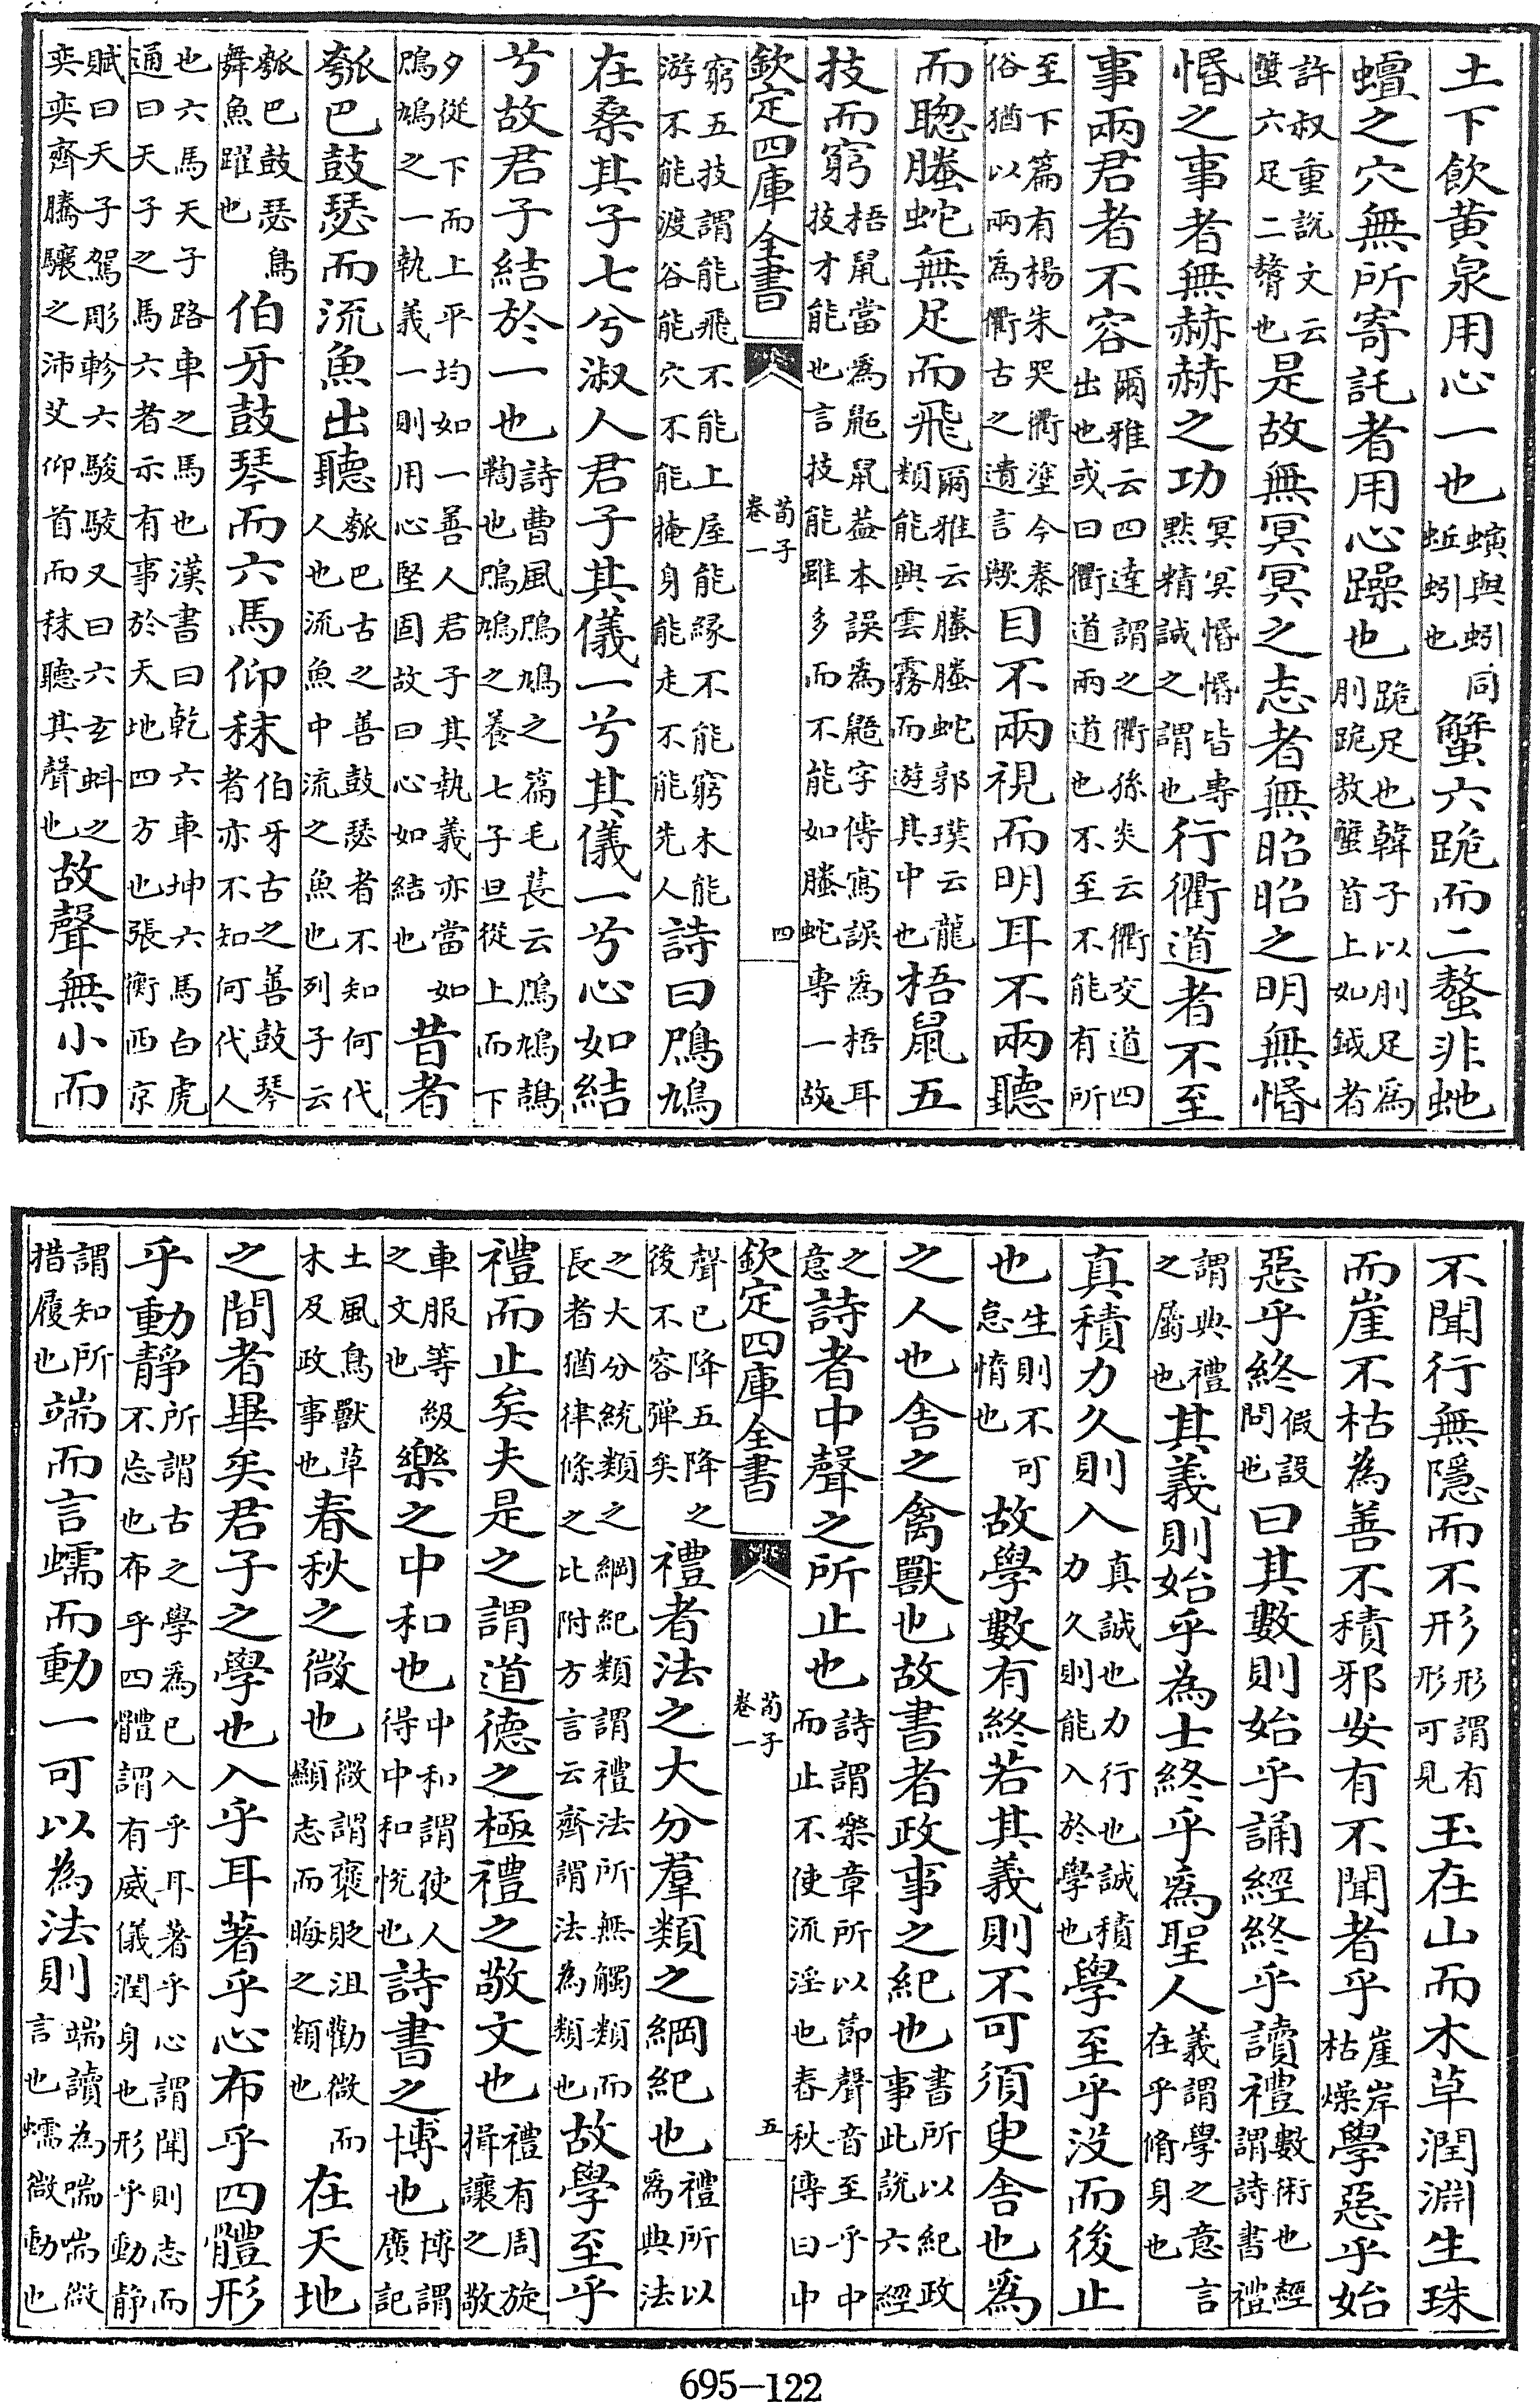 土下飲黄泉用心一也蟥與蚓同蚯蚓也蟹六跪而二螯非虵
蟺之穴無所寄託者用心躁也跪足也韓子以刖足爲刖跪敖蟹首上如鉞者
許叔重說文云蟹六足二螯也是故無冥冥之志者無昭昭之明無惛
惛之事者無赫赫之功冥冥惛惛皆専黙精誠之謂也行衢道者不至
事兩君者不容爾雅云四達謂之衢孫炎云衢交道四出也或曰衢道兩道也不至不能有所
至下篇有楊朱哭衢塗今秦俗猶以兩爲衢古之遺言歟目不兩視而明耳不兩聽
而聦螣蛇無足而飛爾雅云螣螣蛇郭璞云龍類能興雲霧而遊其中也梧鼠五
技而窮梧鼠當爲鼫鼠葢本誤爲鼯字傳寫誤爲梧耳技才能也言技能雖多而不能如螣蛇専一故
欽定四庫全書 荀子卷一 四
窮五技謂能飛不能上屋能縁不能窮木能游不能渡谷能穴不能掩身能走不能先人詩曰鳲鳩
在桑其子七兮淑人君子其儀一兮其儀一兮心如結
兮故君子結於一也詩曹風鳲鳩之篇毛萇云鳲鳩鴶鞫也鳲鳩之養七子旦從上而下
夕從下而上平均如一善人君子其執義亦當如鳲鳩之一執義一則用心堅固故曰心如結也昔者
瓠巴鼓瑟而流魚出聽瓠巴古之善鼓瑟者不知何代人也流魚中流之魚也列子云
瓠巴鼓瑟鳥舞魚躍也伯牙鼓琴而六馬仰秣伯牙古之善鼓琴者亦不知何代人
也六馬天子路車之馬也漢書曰乾六車坤六馬白虎通曰天子之馬六者示有事於天地四方也張衡西京
賦曰天子駕彫軫六駿駮又曰六玄蚪之奕奕齊騰驤之沛艾仰首而秣聽其聲也故聲無小而
不聞行無隱而不形形謂有形可見玉在山而木草潤淵生珠
而崖不枯為善不積邪安有不聞者乎崖岸枯燥學惡乎始
惡乎終假設問也曰其數則始乎誦經終乎讀禮數術也經謂詩書禮
謂典禮之屬也其義則始乎為士終乎爲聖人義謂學之意言在乎脩身也
真積力久則入真誠也力力行也誠積力久則能入於學也學至乎没而後止
也生則不可怠惰也故學數有終若其義則不可須臾舍也爲
之人也舍之禽獸也故書者政事之紀也書所以紀政事此說六經
之意詩者中聲之所止也詩謂樂章所以節聲音至乎中而止不使流淫也春秋傳曰中
欽定四庫全書 荀子卷一 五
聲已降五降之後不容彈矣禮者法之大分羣類之綱紀也禮所以爲典法
之大分統類之綱紀類謂禮法所無觸類而長者猶律條之比附方言云齊謂法為類也故學至乎
禮而止矣夫是之謂道德之極禮之敬文也禮有周旋揖讓之敬
車服等級之文也樂之中和也中和謂使人得中和悅也詩書之博也博謂廣記
土風鳥獸草木及政事也春秋之微也微謂褒貶沮勸微而顯志而晦之類也在天地
之間者畢矣君子之學也入乎耳著乎心布乎四體形
乎動靜所謂古之學爲已入乎耳著乎心謂聞則志而不忘也布乎四體謂有威儀潤身也形乎動静
謂知所措履也端而言蠕而動一可以為法則端讀為喘喘微言也蠕微動也
695-122